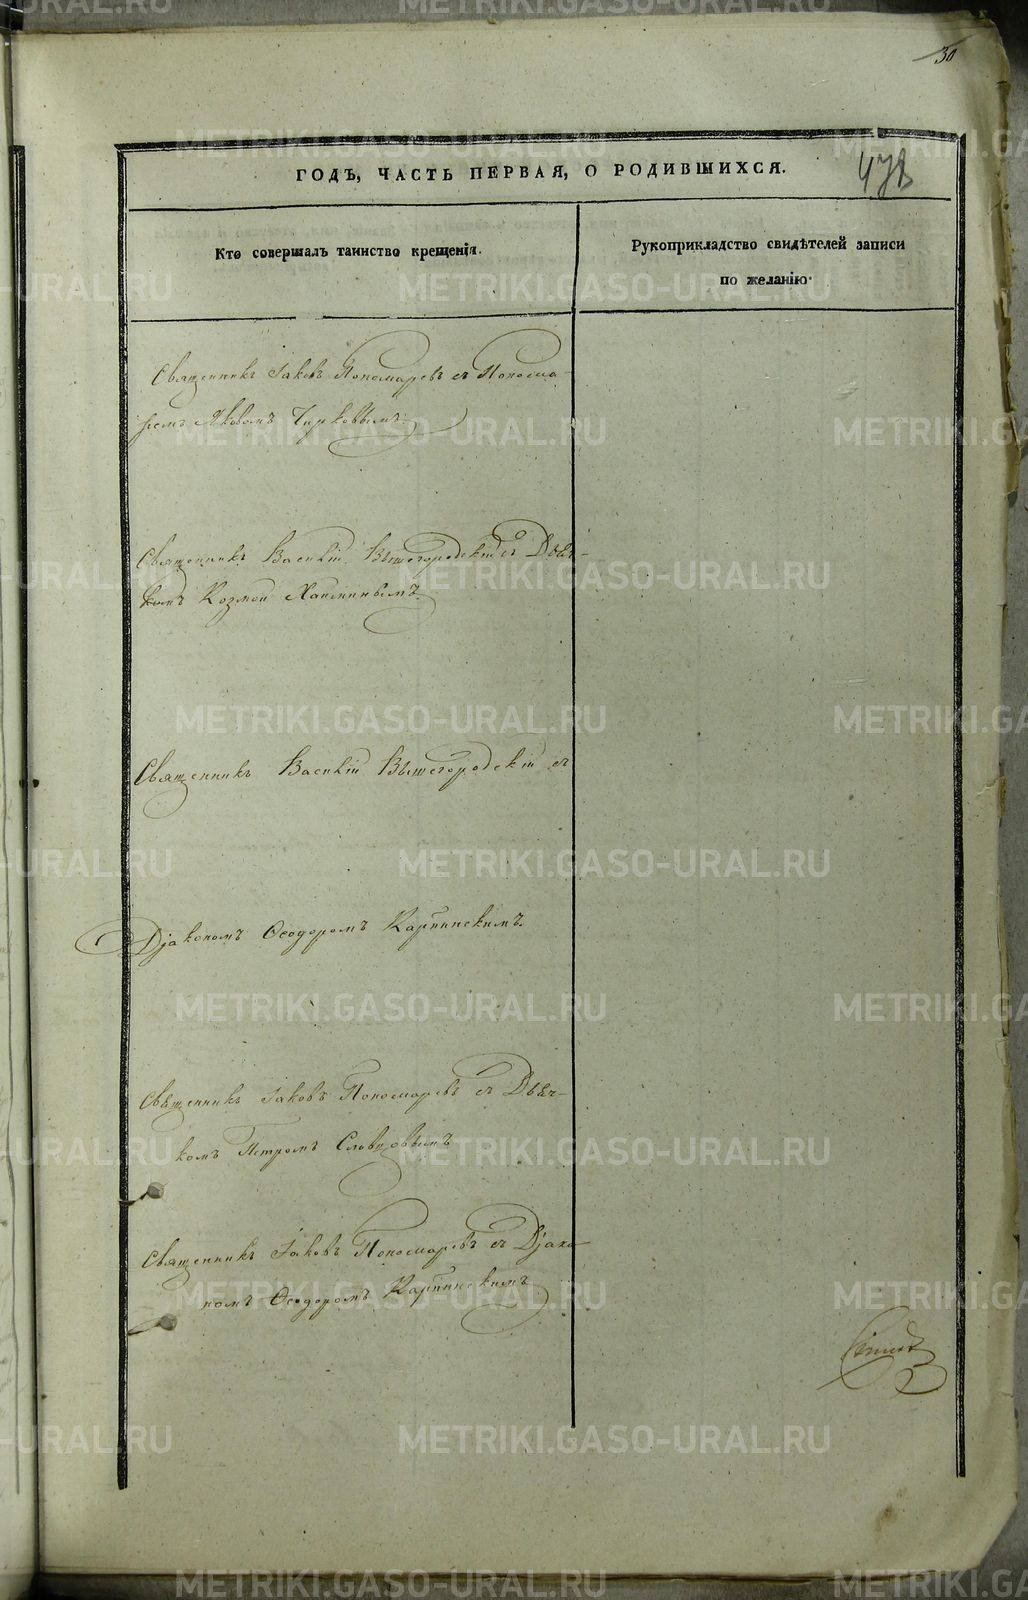 30
ГОДЪ, ЧАСТЬ ПЕРВАЯ, О РОДИВШИХСЯ.
478
Кто совершалъ таинство крещенія.
Рукоприкладство свидѣтелей записи
по желанію.
Священникъ Іаковъ Пономаревъ съ Понома-
ремъ Яковомъ Чирковымъ
Священникъ Василій Вышегородскій съ Дьяч-
комъ Козмой
Священникъ Василій Вышегородскій съ
Діакономъ Ѳеодоромъ Карпинскимъ
Священникъ Іаковъ Пономаревъ съ Дьяч-
комъ Петромъ Словцовымъ
Священникъ Іаковъ Пономаревъ съ Діако-
номъ Ѳеодоромъ Карпинскимъ
METRIKI.GASO-URAL.RU